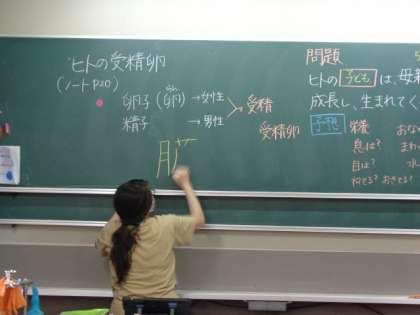 ヒトの受精卵
(ノートP20)
卵子(卵)→女性
精子 →男性
受精
受精卵
月
問題
ヒトの子どもは、母親
成長し、生まれてく
予想 栄養
息は?
目は?
おな
まわ
水
ねてる?おきてる?